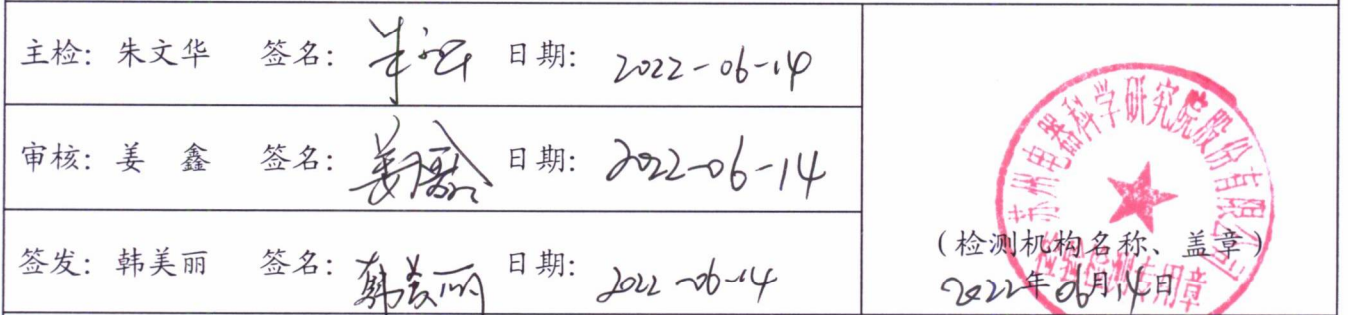 主检: 朱文华 签名: 朱文华 日期: 2022-06-14
审核: 姜 鑫 签名: 姜鑫 日期: 2022-06-14
签发: 韩美丽 签名: 韩美丽 日期: 2022-06-14
苏州电器科学研究院股份有限公司
检验检测专用章
(检测机构名称、盖章)
2022年06月14日